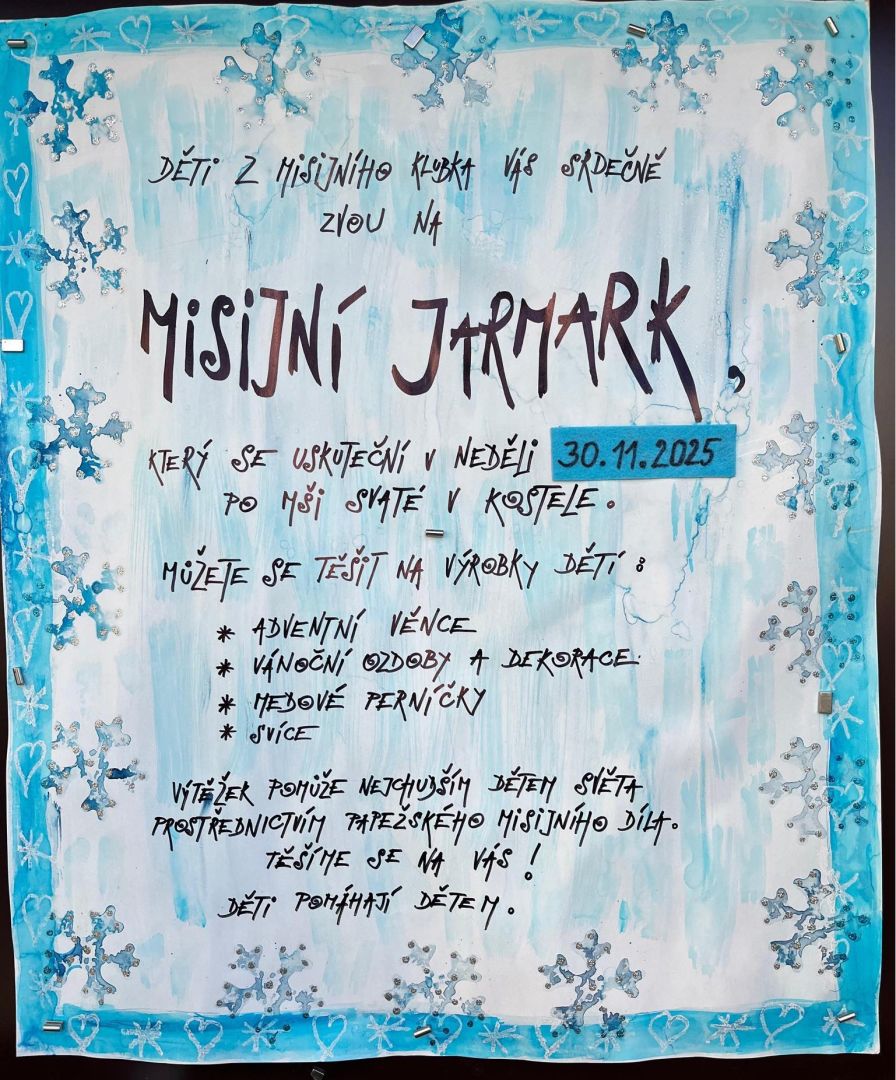 DĚTI Z MISIJNÍHO KLUBKA VÁS SRDEČNĚ
ZVOU NA
MISIJNÍ JARMARK,
KTERÝ SE USKUTEČNÍ V NEDĚLI 30.11.2025
PO MŠI SVATÉ V KOSTELE.
MŮŽETE SE TĚŠIT NA VÝROBKY DĚTÍ:
* ADVENTNÍ VĚNCE
* VÁNOČNÍ OZDOBY A DEKORACE
* MEDOVÉ PERNÍČKY
* SVÍCE
VÝTĚŽEK POMŮŽE NEJCHUDŠÍM DĚTEM SVĚTA
PROSTŘEDNICTVÍM PAPEŽSKÉHO MISIJNÍHO DÍLA.
TĚŠÍME SE NA VÁS!
DĚTI POMÁHAJÍ DĚTEM.